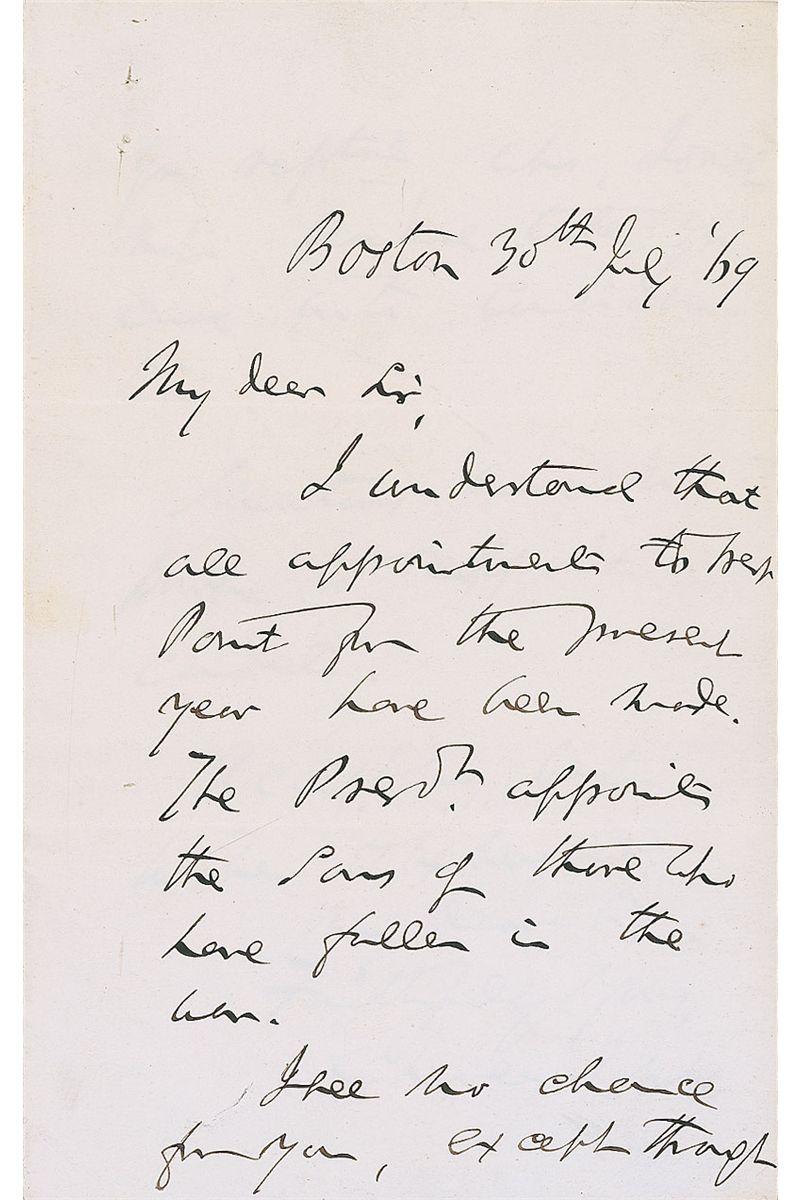 Boston 30th July '69
My dear Sir,
I understand that
all appointments to West
Point for the present
year have been made.
The Presdt. appoints
the sons of those who
have fallen in the
war.
I see no chance
for you, except through